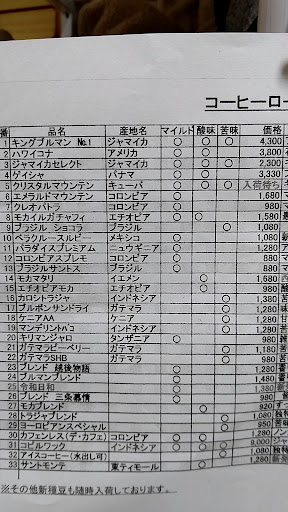 コーヒーロー
番 品名 産地名 マイルド 酸味 苦味 価格
1 キングブルマン No.1 ジャマイカ ○ ○ ○ 4,300
2 ハワイコナ アメリカ ○ ○ 3,800
3 ジャマイカセレクト ジャマイカ ○ ○ ○ 2,300
4 ゲイシャ パナマ ○ ○ 3,330
5 クリスタルマウンテン キューバ ○ ○ 入荷待ち
6 エメラルドマウンテン コロンビア ○ 1,680
7 クレオパトラ コロンビア ○ 980
8 モカイルガチャフィ エチオピア ○ ○ 1,580
9 ブラジル ショコラ ブラジル ○ 980
10 ペラクルースルビー メキシコ ○ 1,080
11 パラダイスプレミアム ニュウギニア ○ 1,280
12 コロンビアスプレモ コロンビア ○ 880
13 ブラジルサントス ブラジル ○ 880
14 モカマタリ イエメン ○ 1,680
15 エチオピアモカ エチオピア ○ 980
16 カロシトラジャ インドネシア ○ 1,380
17 ブルボンサンドライ ガテマラ ○ 1,280
18 ケニアAA ケニア ○ 1,280
19 マンデリントバコ インドネシア ○ 1,280
20 キリマンジャロ タンザニア ○ 1,180
21 ガテマラピーベリー ガテマラ ○ 1,180
22 ガテマラSHB ガテマラ ○ 980
23 ブレンド 越後物語 ○ 1,280
24 ブルマンブレンド ○ 1,280
25 令和日和 ○ 1,280
26 ブレンド 三条慕情 ○ 1,280
27 モカブレンド ○ 920
28 トラジャブレンド ○ 980
29 ヨーロピアンスペシャル ○ 950
30 カフェンレス(デ・カフェ) コロンビア ○ 1,280
31 コピルワック インドネシア ○ ○ ○ 9,000
32 アイスコーヒー(水出し可) ○ 1,080
33 サントモンテ 東ティモール ○ 1,280
※その他新種豆も随時入荷しております。